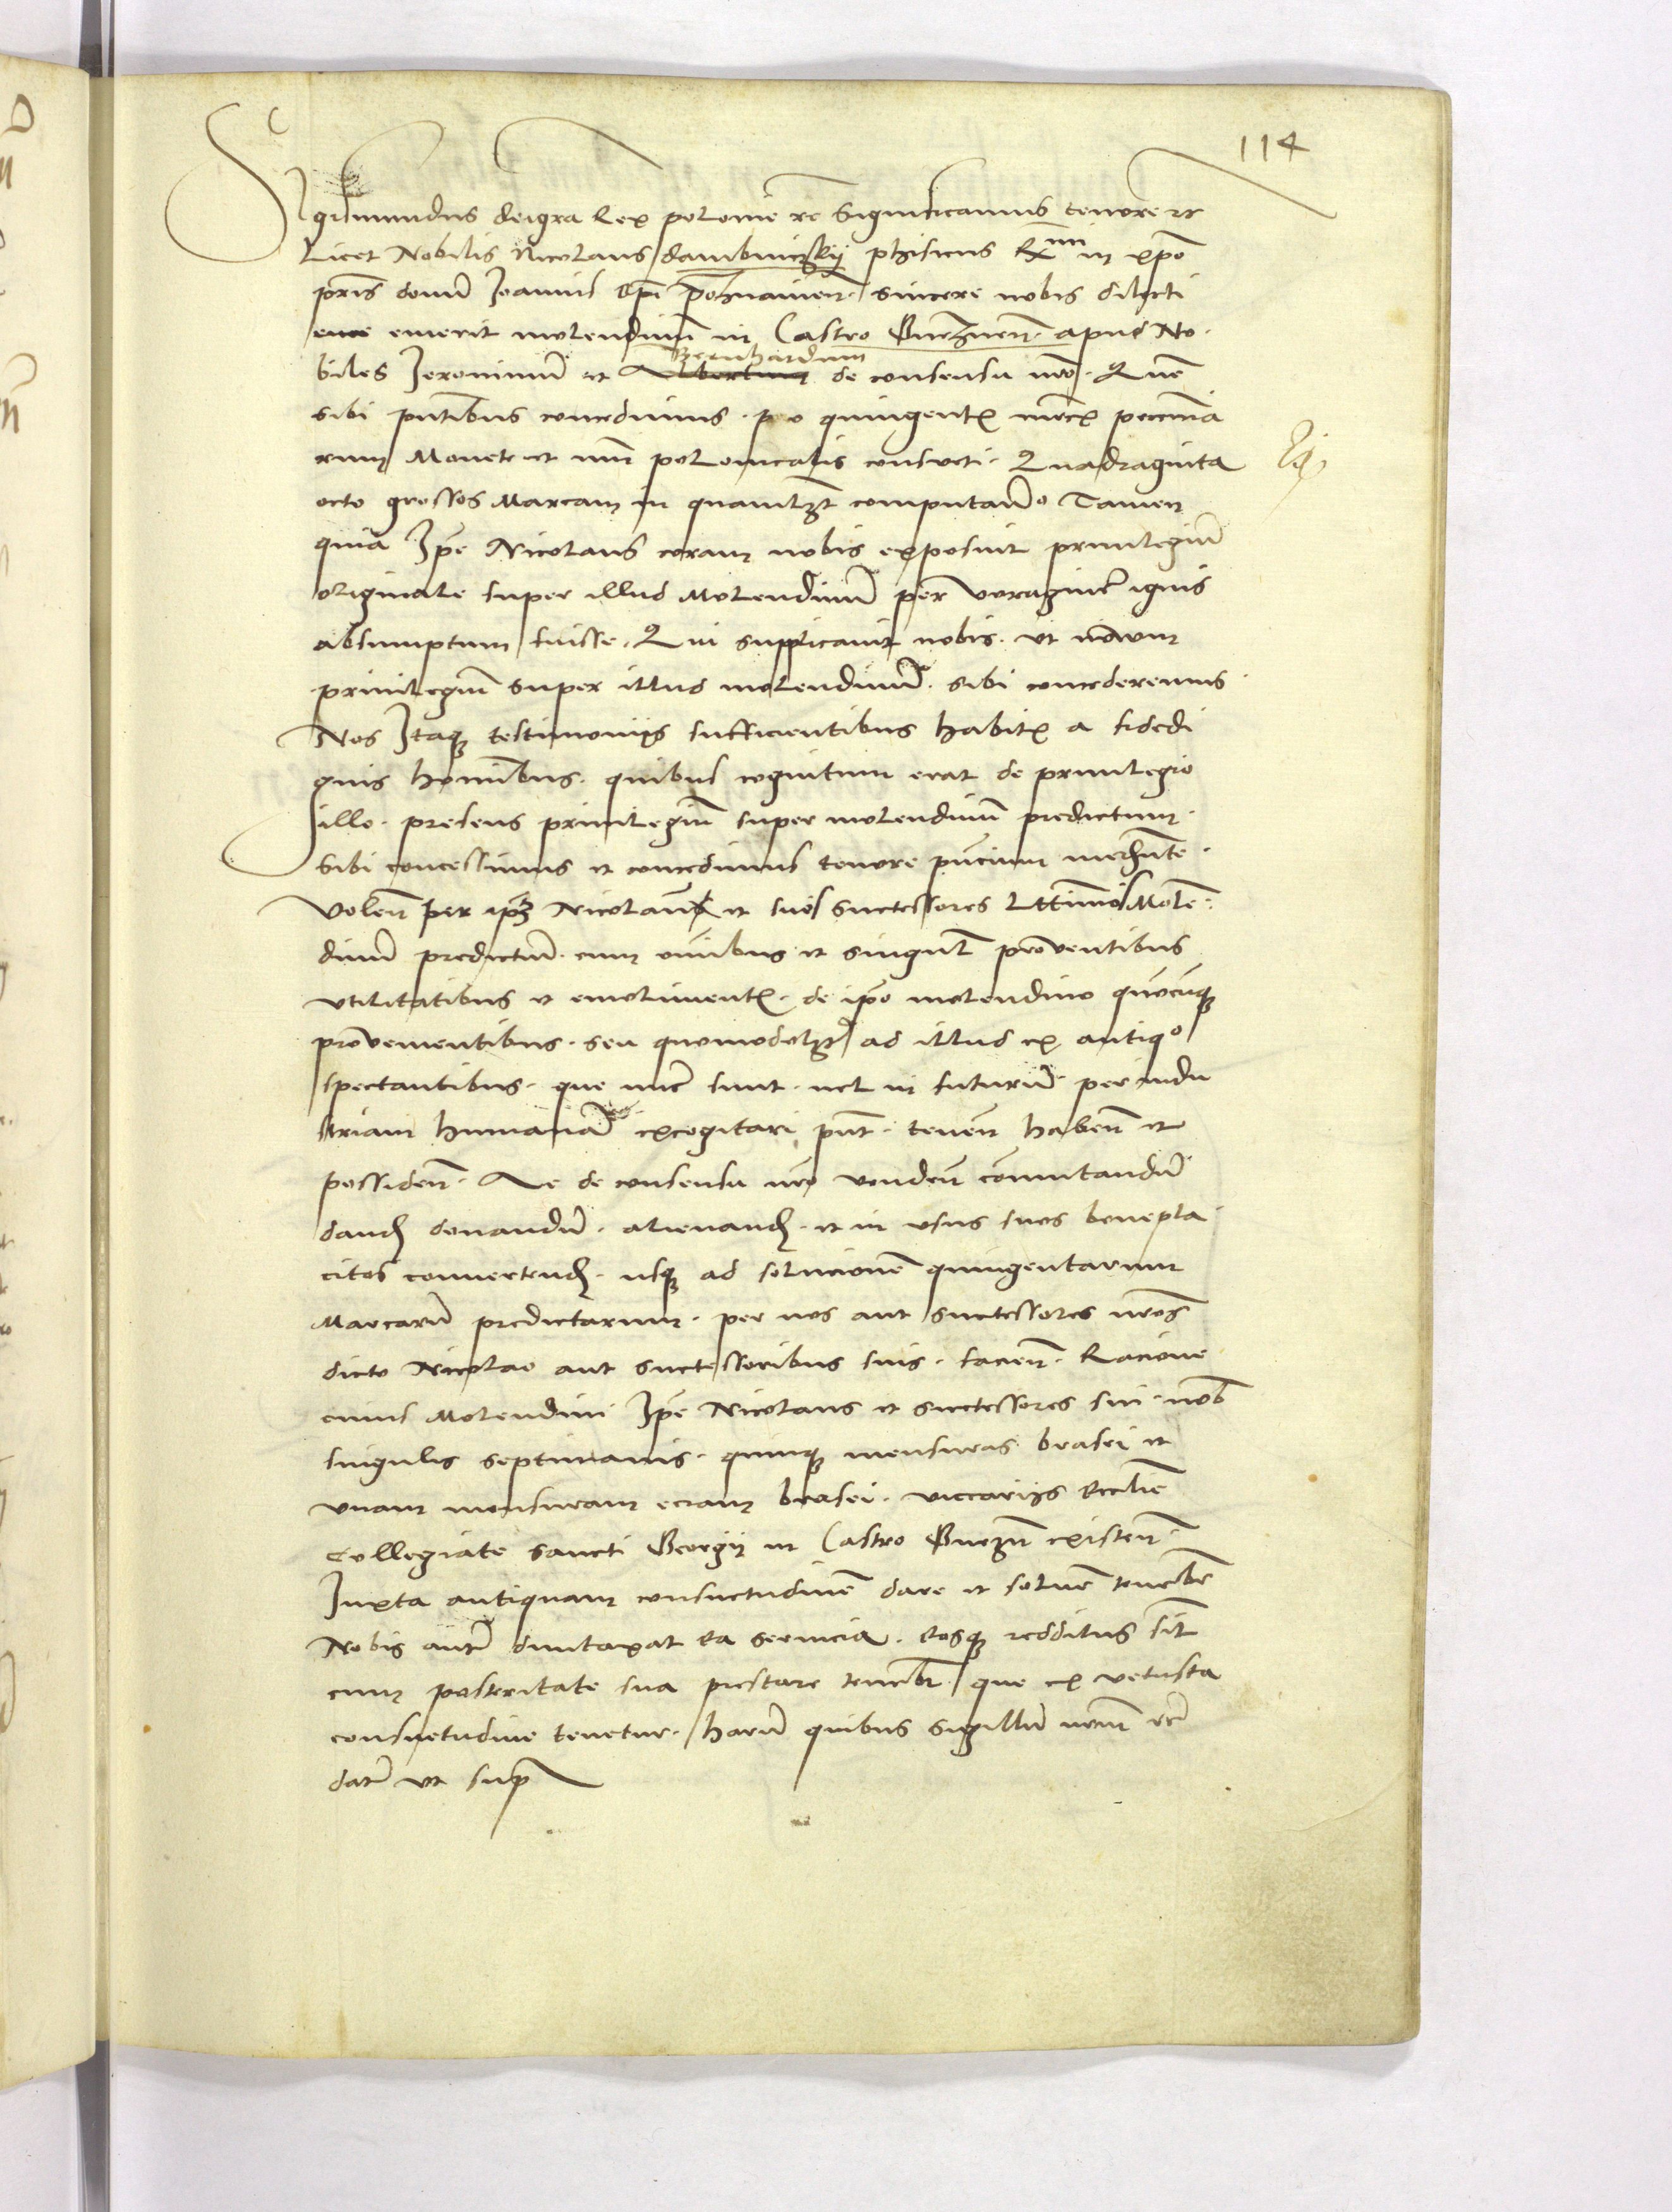 114
Sigismundus dei gra Rex polonie rc Significamus tenore rc
Licet Nobilis Nicolaus dambinczkij phisicus Rmi in xpo
pris domi Joannis Epi poznanien. sincere nobis dilecti
emerit molendinum in Castro Gneznen. apud No-
biles Jeronimu et Albertum Bernhardum de consensu nro. Quem
sibi pntibus concedimus. pro quingentis mrcis peccunia
rum Monete et numi polonicalis consueti. Quadraginta
octo grossos Marcam in quamlzt computando Tamen
quia Ipse Nicolaus coram nobis exposuit priuilegium
originale super illud Molendinum per voraginem ignis
absumptum fuisse. Qui supplicauit nobis. ut nouum
priuilegium super illud molendinum. sibi concederemus
Nos Itaque testimoniis sufficientibus habitis a fidedi
gnis hominibus. quibus cognitum erat de priuilegio
illo. presens priuilegium super molendinum predictum.
Sibi concessimus et concedimus tenore pncium mediante.
Volen per ipm Nicolaum et suos successores Lttimos Molen
dinum predictum. cum omnibus et singulis prouentibus
vtilitatibus et emolimentis. de ipso molendino quocunque
prouenientibus. seu quomodolzt ad illud ex antiquo
spectantibus. que nunc sunt. uel in futurum per indu
striam humanam excogitari pnt. tenen haben et
possiden. Ac de consensu nro venden commutandum
dand donandum. alienand. et in usus suos benepla
citos conuertend. usque ad solucionem quingentarum
Marcarum predictarum. per nos aut successores nros
dicto Nicolao aut successoribus suis. facien. Racione
cuius Molendini Ipse Nicolaus et successores sui nob
singulis septimanis. quinque mensuras brasei et
vnam mensuram eciam brasei. viccarijs Ecclie
Collegiate sancti Georgij in Castro Gnezn existen
Juxta antiquam consuetudinem dare et soluere tenebitur
Nobis autem duntaxat ea seruicia. eosque redditus sit
cum posteritate sua prestare tenebitur que ex vetusta
consuetudine tenetur. harum quibus sigillum nrum rc
datum vt supra